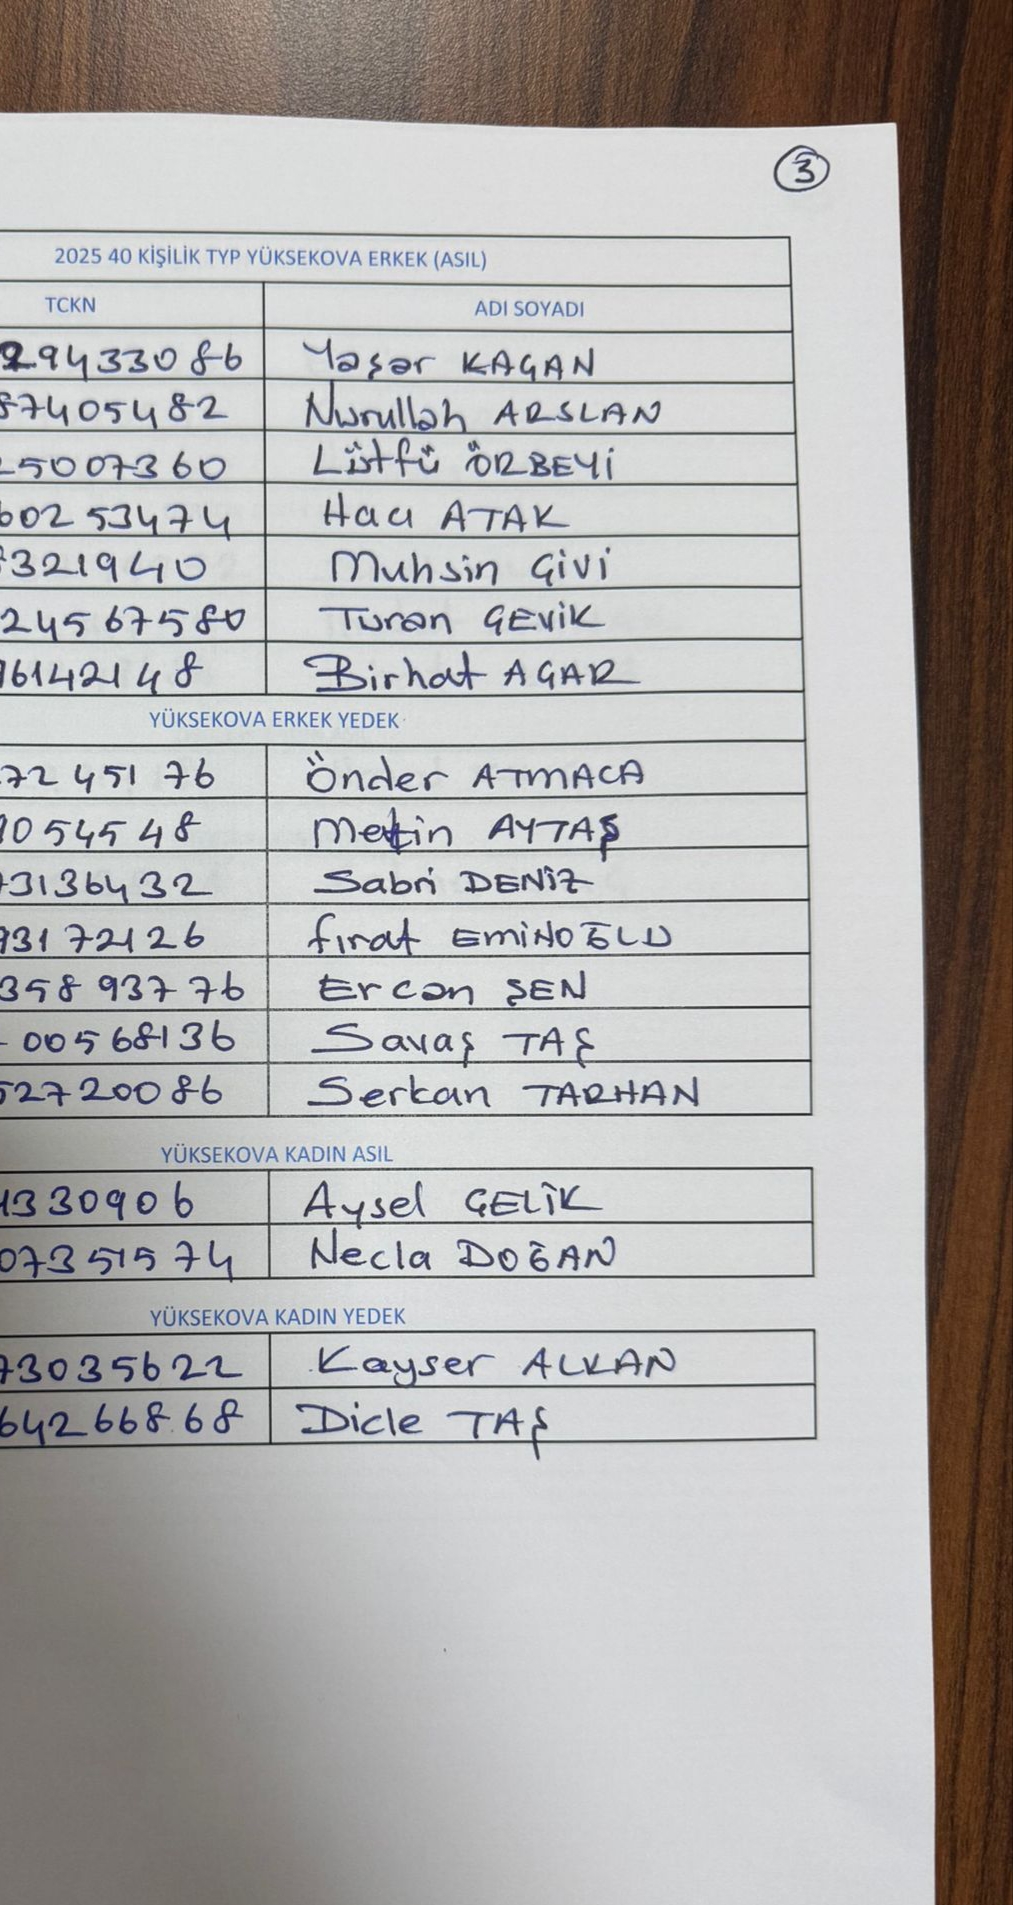 3
2025 40 KİŞİLİK TYP YÜKSEKOVA ERKEK (ASIL)
TCKN ADI SOYADI
29433086 Yaşar KAÇAN
87405482 Nurullah ARSLAN
25007360 Lütfü ÖRBEYİ
60253474 Hacı ATAK
7321940 Muhsin Givi
24567580 Turan ÇEVİK
96142148 Birhat AÇAR
YÜKSEKOVA ERKEK YEDEK
7245176 Önder ATMACA
9054548 Metin AYTAŞ
73136432 Sabri DENİZ
93172126 fırat EMİNOĞLU
35893776 Ercan ŞEN
00568136 Savaş TAŞ
52720086 Serkan TARHAN
YÜKSEKOVA KADIN ASIL
1330906 Aysel ÇELİK
07351574 Necla DOĞAN
YÜKSEKOVA KADIN YEDEK
73035622 Kayser ALKAN
64266868 Dicle TAŞ